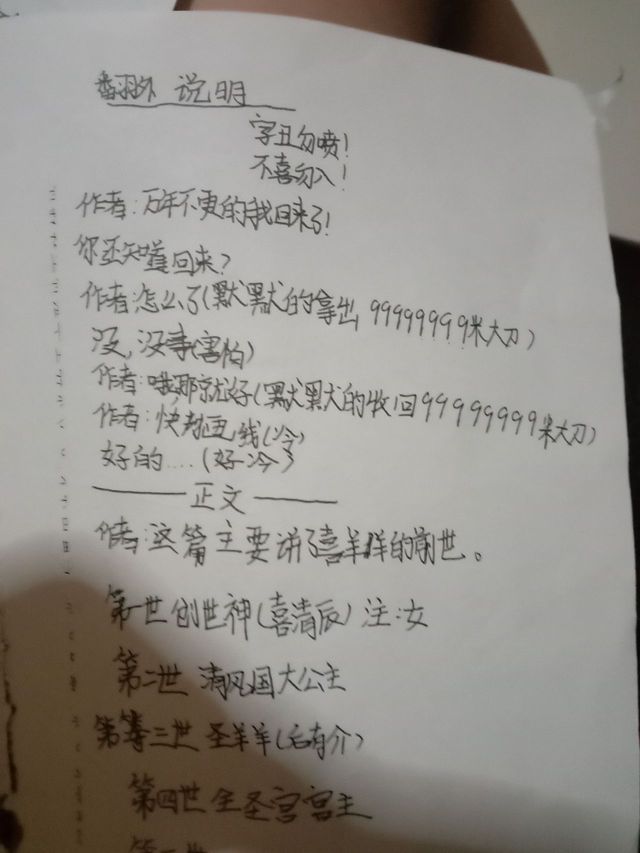 番外 说明
字丑勿喷!
不喜勿入!
作者:万年不更的我回来了!
你还知道回来?
作者:怎么了(默默的拿出99999999米大刀)
没,没事(害怕)
作者:哦那就好(默默的收回99999999米大刀)
作者:快去画线(冷)
好的....(好冷)
正文
作者:这篇主要讲了喜羊羊的前世。
第一世 创世神(喜清辰)注:女
第二世 清风国大公主
第三世 圣羊羊(后有介)
第四世 全圣宫宫主